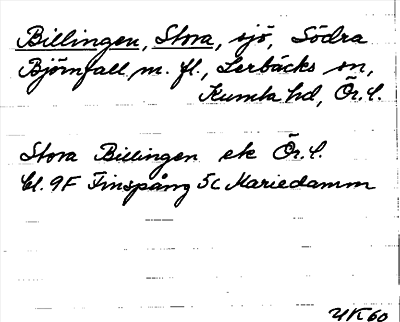 Billingen, Stora, sjö, Södra
Björnfall m. fl., Lerbäcks sn,
Kumla hd, Ör. l.
Stora Billingen ek Ör. l.
bl. 9F Finspång 5c Mariedamm
UK60